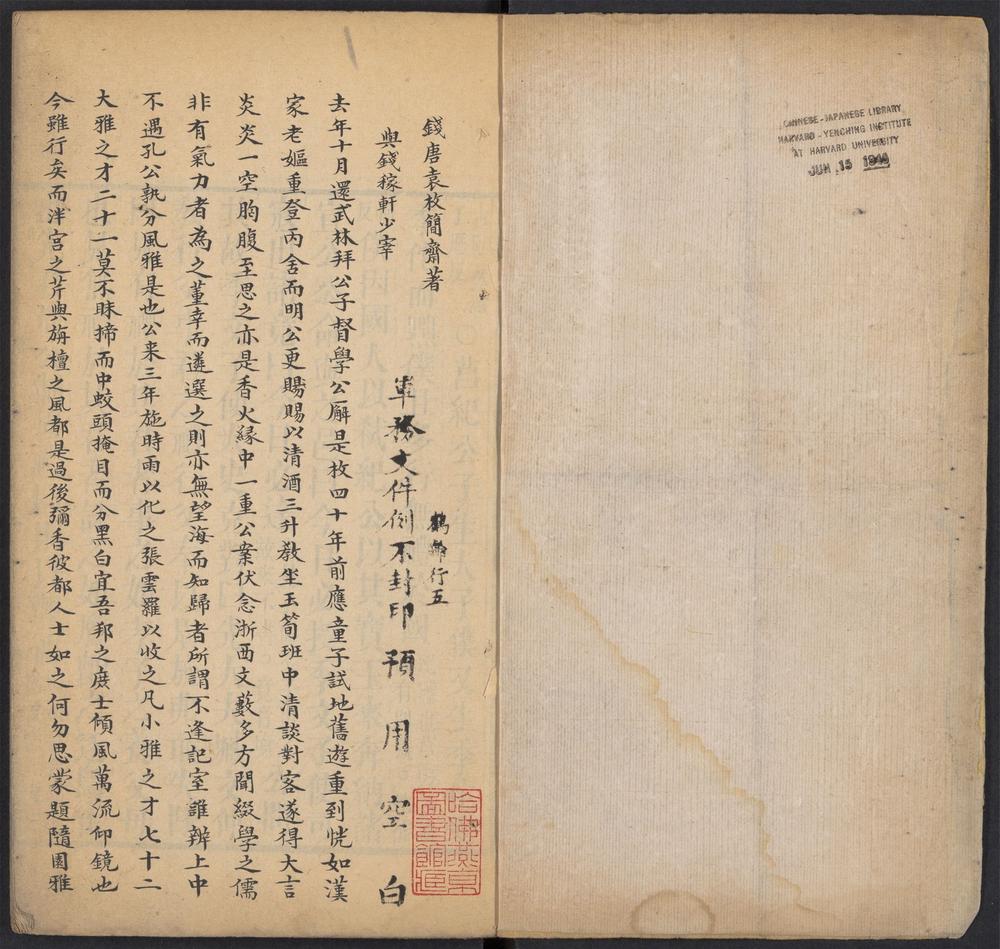 錢唐袁枚簡齋著
與錢稼軒少宰
去年十月還武林拜公子督學公廨是枚四十年前應童子試地舊遊重到恍如漢
家老嫗重登丙舍而明公更賜賜以清酒三升教坐玉筍班中清談對客遂得大言
炎炎一空胸腹至思之亦是香火緣中一重公案伏念浙西文藪多方聞綴學之儒
非有氣力者為之董幸而遴選之則亦無望海而知歸者所謂不逢記室誰辨上中
不遇孔公孰分風雅是也公来三年施時雨以化之張雲羅以收之凡小雅之才七十二
大雅之才二十一莫不眜掃而中蛟頭掩目而分黑白宜吾邦之庶士傾風萬流仰鏡也
今雖行矣而泮宮之芹與旃檀之風都是過後彌香彼都人士如之何勿思蒙題隨園雅
軍務文件例不封印預用空白
行五
哈佛燕京圖書館
CHINESE-JAPANESE LIBRARY
HARVARD-YENCHING INSTITUTE
AT HARVARD UNIVERSITY
JUN 15 1940